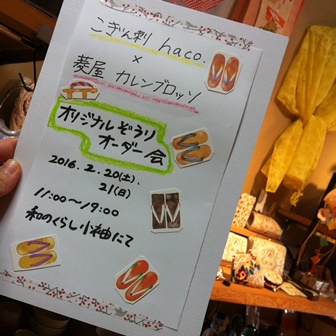 こぎん刺 haco.
×
菱屋 カレンブロッソ
オリジナルぞうり
オーダー会
2016.2.20(土).
21(日)
11:00〜19:00
和のくらし小紬にて